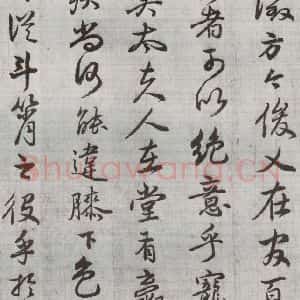 激方今俊乂在官百
者可以絕意乎寵
矣太夫人在堂看
尚何能違膝下色
從斗筲之役乎於
Shufawang.CN